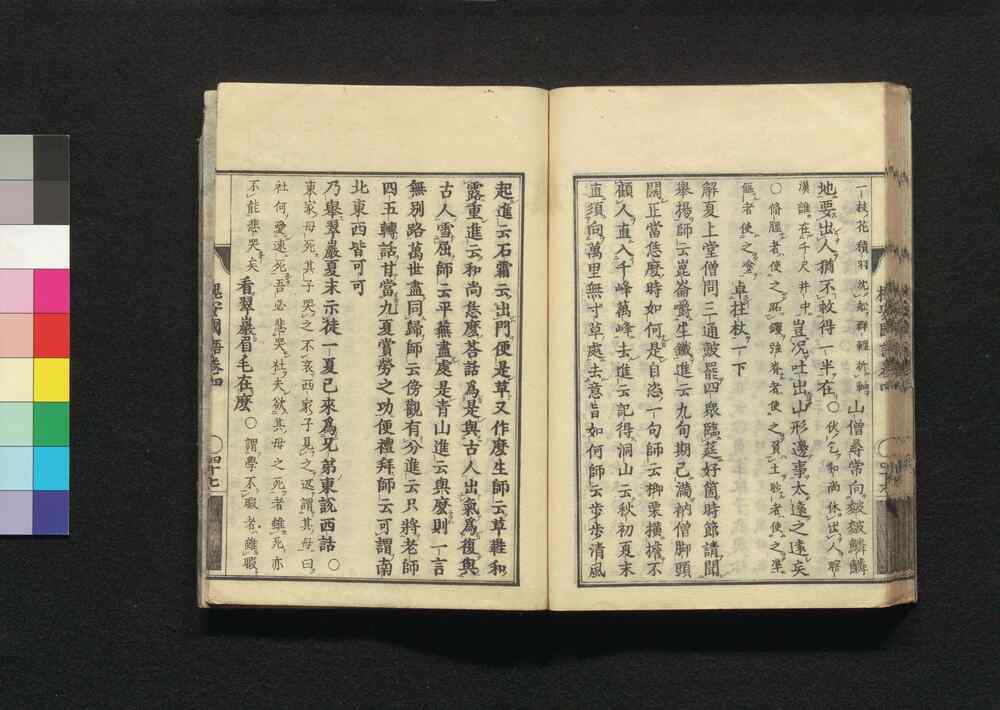 一枝花積羽沈船群輕折軸山僧尋常向皴皴鱗鱗
地要出人猶不敢得一半在○伏乞和尚休出人聻
漢誰在千尺井中豈況吐出山形邊事太遠之遠矣
○脩脛者使之跖钁強脊者使之負土眇者使之準
傴者使之塗卓拄杖一下
解夏上堂僧問三通皷罷四衆臨莚好箇時節請聞
舉揚師云崑崙嚼生鐵進云九旬期已滿衲僧脚頭
闊正當恁麼時如何是自恣一句師云楖栗橫擔不
顧人直入千峰萬峰去進云記得洞山云秋初夏末
直須向萬里無寸草處去意旨如何師云步步清風
起進云石霜云出門便是草又作麼生師云草鞋和
露重進云和尚恁麼荅話爲是與古人出氣爲復與
古人雪屈師云平蕪盡處是青山進云與麼則一言
無別路萬世盡同歸師云傍觀有分進云只將老師
四五轉話甘當九夏賞勞之功便禮拜師云可謂南
北東西皆可可
乃舉翠巖夏末示徒一夏已來爲兄弟東說西話○
東家母死其子哭之不哀西家子見之返謂其母曰
社何愛速死吾必悲哭社夫欲其母之死者雖死亦
不能悲哭矣看翠巖眉毛在麼○謂學不暇者雖暇
槐安國語卷四
○四十七